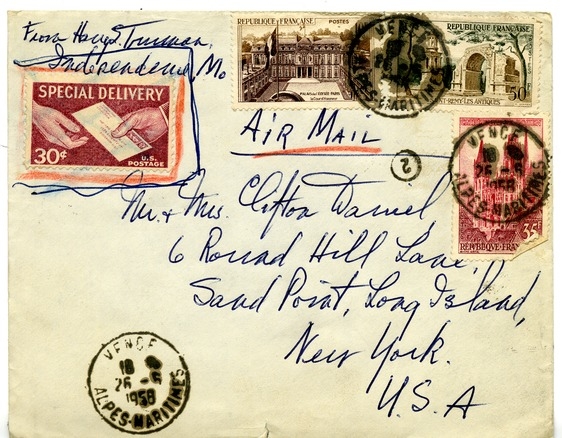 From Harry S. Truman,
Independence, Mo
SPECIAL DELIVERY
30¢
U.S.
POSTAGE
REPUBLIQUE FRANÇAISE
POSTES
PALAIS DE L'ELYSEE PARIS
REPUBLIQUE FRANÇAISE
50F
SAINT-REMY LES ANTIQUES
VENCE
ALPES-MARITIMES
AIR MAIL
2
VENCE
18
26-5
1958
ALPES-MARITIMES
35F
REPUBLIQUE FRAN
Mr. & Mrs. Clifton Daniel,
6 Round Hill Lane,
Sand Point, Long Island,
New York.
U.S.A
VENCE
18
26-5
1958
ALPES-MARITIMES